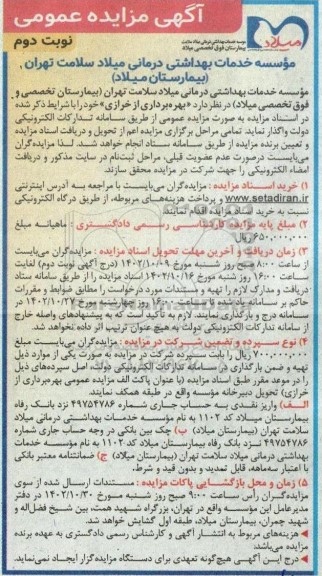 آگهی مزایده عمومی
نوبت دوم
میلاد
موسسه خدمات بهداشتی درمانی میلاد سلامت تهران
بیمارستان فوق تخصصی میلاد
مؤسسه خدمات بهداشتی درمانی میلاد سلامت تهران
(بیمارستان میلاد)
مؤسسه خدمات بهداشتی درمانی میلاد سلامت تهران (بیمارستان تخصصی و
فوق تخصصی میلاد) در نظر دارد «بهره‌برداری از خرازی» خود را با شرایط ذکر شده
در اسناد مزایده به صورت مزایده عمومی از طریق سامانه تدارکات الکترونیکی
دولت واگذار نماید. تمامی مراحل برگزاری مزایده اعم از تحویل و دریافت اسناد مزایده
و تعیین برنده مزایده از طریق سامانه ستاد انجام خواهد شد. لذا مزایده‌گران
می‌بایست درصورت عدم عضویت قبلی، مراحل ثبت‌نام در سایت مذکور و دریافت
امضاء الکترونیکی را جهت شرکت در مزایده محقق سازند.
۱) خرید اسناد مزایده : مزایده‌گران می‌بایست با مراجعه به آدرس اینترنتی
www.setadiran.ir و پرداخت هزینه‌های مربوطه، از طریق درگاه الکترونیکی
نسبت به خرید اسناد مزایده اقدام نمایند
۲) مبلغ پایه مزایده کارشناسی رسمی دادگستری : ماهیانه مبلغ
۶۵۰,۰۰۰,۰۰۰ ریال
۳) زمان دریافت و آخرین مهلت تحویل اسناد مزایده : مزایده‌گران می‌بایست
از ساعت ۸:۰۰ صبح روز شنبه مورخ ۱۴۰۲/۱۰/۰۹ (درج آگهی نوبت دوم) لغایت
ساعت ۱۶:۰۰ روز شنبه مورخ ۱۴۰۲/۱۰/۱۶ اسناد مزایده را از طریق سامانه ستاد
دریافت و مدارک لازم را تهیه و مستندات مورد درخواست را مطابق ضوابط و مقررات
حاکم بر سامانه یاد شده تا ساعت ۱۶:۰۰ روز چهارشنبه مورخ ۱۴۰۲/۱۰/۲۷ در
سامانه درج و بارگذاری نمایند. لازم به تأکید است که به پیشنهادهای واصله خارج
از سامانه تدارکات الکترونیکی دولت به هیچ عنوان ترتیب اثر داده نخواهد شد.
۴) نوع سپرده و تضمین شرکت در مزایده : مزایده‌گران می‌بایست مبلغ
۷۰۰,۰۰۰,۰۰۰ ریال را بابت سپرده شرکت در مزایده به صورت یکی از موارد ذیل
تهیه و ضمن بارگذاری در سامانه تدارکات الکترونیکی دولت، اصل سپرده‌های ذیل
را در موعد مقرر طبق اسناد مزایده (با عنوان پاکت الف مزایده عمومی بهره‌برداری از
خرازی) تحویل دبیرخانه مؤسسه واقع در طبقه همکف نمایند.
الف) واریز نقدی به حساب جاری شماره ۴۹۷۵۴۷۸۶ نزد بانک رفاه
بیمارستان میلاد کد ۱۱۰۲ به نام مؤسسه خدمات بهداشتی درمانی میلاد
سلامت تهران (بیمارستان میلاد) ب) چک بین بانکی در وجه حساب جاری شماره
۴۹۷۵۴۷۸۶ نزد بانک رفاه بیمارستان میلاد کد ۱۱۰۲ به نام مؤسسه خدمات
بهداشتی درمانی میلاد سلامت تهران (بیمارستان میلاد) ج) ضمانتنامه معتبر بانکی
با اعتبار سه‌ماهه، قابل تمدید و بدون قید و شرط.
۵) زمان و محل بازگشایی پاکات مزایده : مستندات ارسال شده از سوی
مزایده‌گران رأس ساعت ۹:۰۰ صبح روز شنبه مورخ ۱۴۰۲/۱۰/۳۰ در دفتر
مدیرعامل این مؤسسه واقع در تهران، بزرگراه شهید همت، بین شیخ فضل‌اله و
شهید چمران، بیمارستان میلاد، طبقه اول گشایش خواهد شد.
هزینه‌های مربوط به انتشار آگهی و کارشناس رسمی دادگستری به عهده برنده
مزایده می‌باشد.
درج این آگهی هیچ‌گونه تعهدی برای دستگاه مزایده‌گزار ایجاد نمی‌نماید.